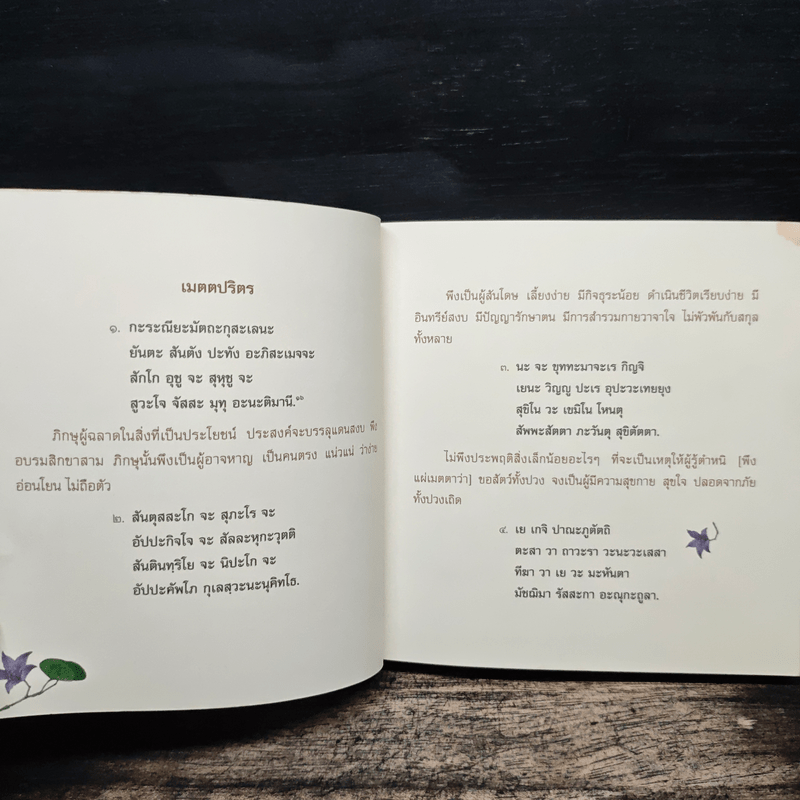 เมตตปริตร
๑. กะระณียะมัตถะกุสะเลนะ
ยันตะ สันตัง ปะทัง อะภิสะเมจจะ
สักโก อุชู จะ สุหุชู จะ
สูวะโจ จัสสะ มุทุ อะนะติมานี.
ภิกษุผู้ฉลาดในสิ่งที่เป็นประโยชน์ ประสงค์จะบรรลุแดนสงบ พึง
อบรมสิกขาสาม ภิกษุนั้นพึงเป็นผู้อาจหาญ เป็นคนตรง แน่วแน่ ว่าง่าย
อ่อนโยน ไม่ถือตัว
๒. สันตุสสะโก จะ สุภะโร จะ
อัปปะกิจโจ จะ สัลละหุกะวุตติ
สันตินทฺริโย จะ นิปะโก จะ
อัปปะคัพโภ กุเลสฺวะนะนุคิทโธ.
พึงเป็นผู้สันโดษ เลี้ยงง่าย มีกิจธุระน้อย ดำเนินชีวิตเรียบง่าย มี
อินทรีย์สงบ มีปัญญารักษาตน มีการสำรวมกายวาจาใจ ไม่พัวพันกับสกุล
ทั้งหลาย
๓. นะ จะ ขุททะมาจะเร กิญจิ
เยนะ วิญญู ปะเร อุปะวะเทยยุง
สุขิโน วะ เขมิโน โหนตุ
สัพพะสัตตา ภะวันตุ สุขิตัตตา.
ไม่พึงประพฤติสิ่งเล็กน้อยอะไรๆ ที่จะเป็นเหตุให้ผู้รู้ตำหนิ [พึง
แผ่เมตตาว่า] ขอสัตว์ทั้งปวง จงเป็นผู้มีความสุขกาย สุขใจ ปลอดจากภัย
ทั้งปวงเถิด
๔. เย เกจิ ปาณะภูตัตถิ
ตะสา วา ถาวะรา วะนะวะเสสา
ทีฆา วา เย วะ มะหันตา
มัชฌิมา รัสสะกา อะณุกะถูลา.